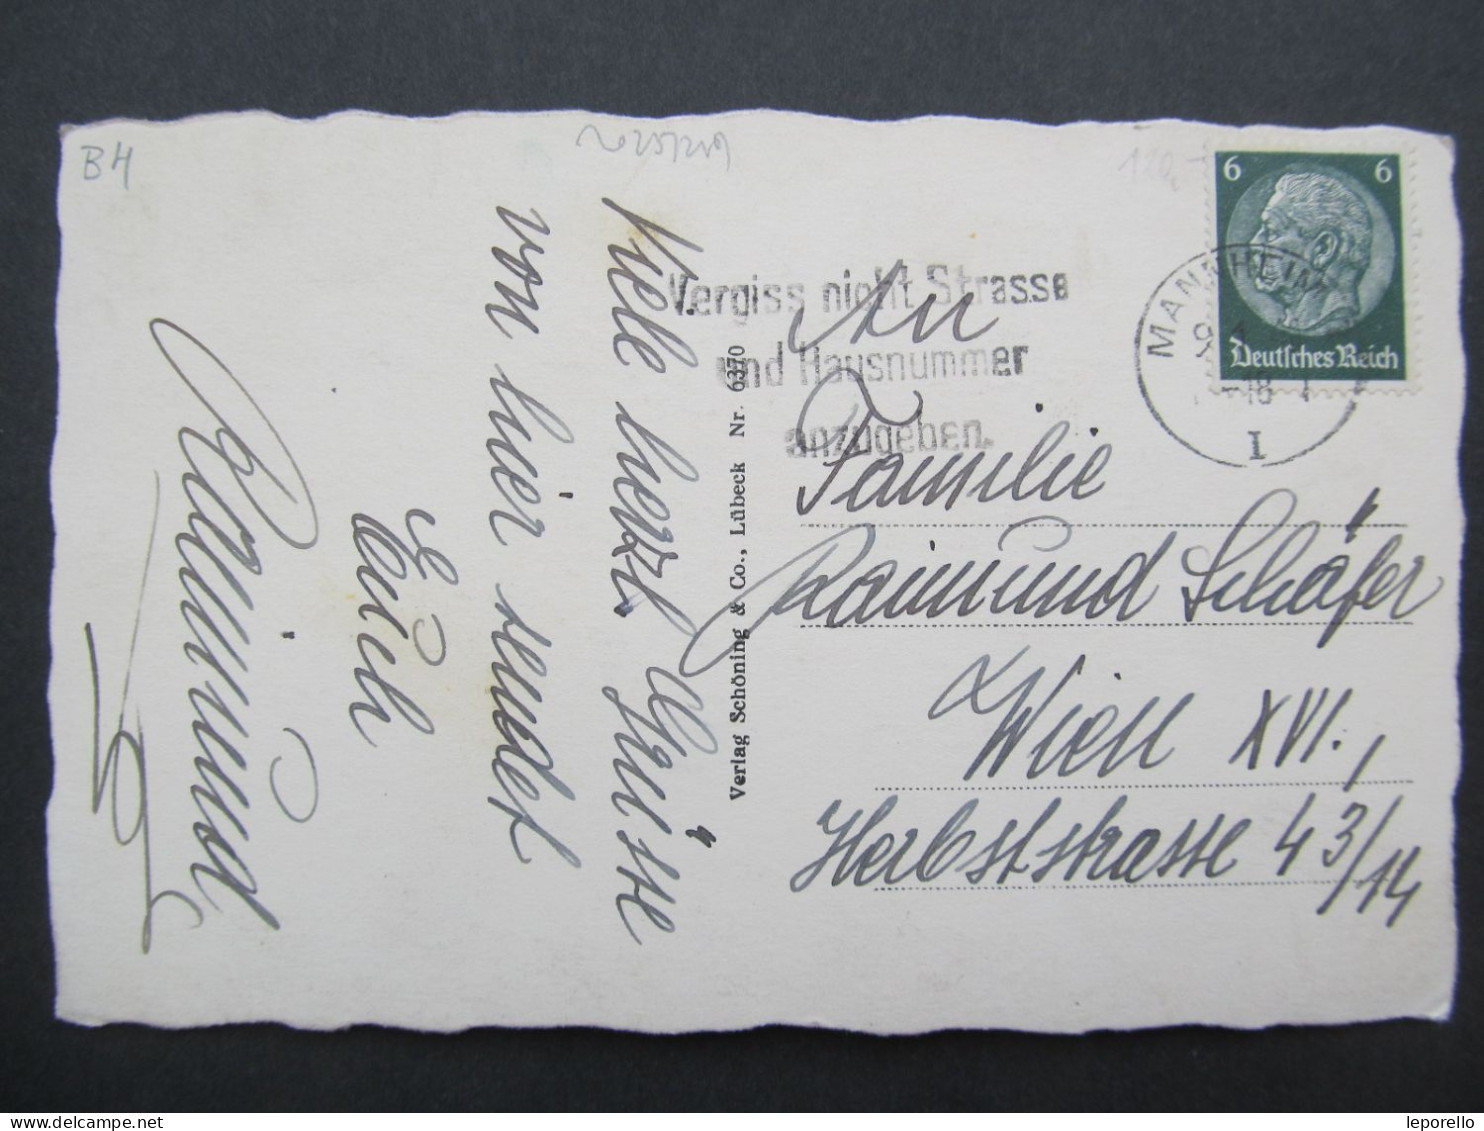 B4
120.-
6 6
Deutsches Reich
MANNHEIM
-18
1
Vergiss nicht Strasse
und Hausnummer
anzugeben.
Viele herzl. Grüsse
von hier sendet
Euch
Raimund
Verlag Schöning & Co., Lübeck Nr. 6370
An
Familie
Raimund Schäfer
Wien XVI.,
Herbststrasse 43/14
delcampe.net
leporello